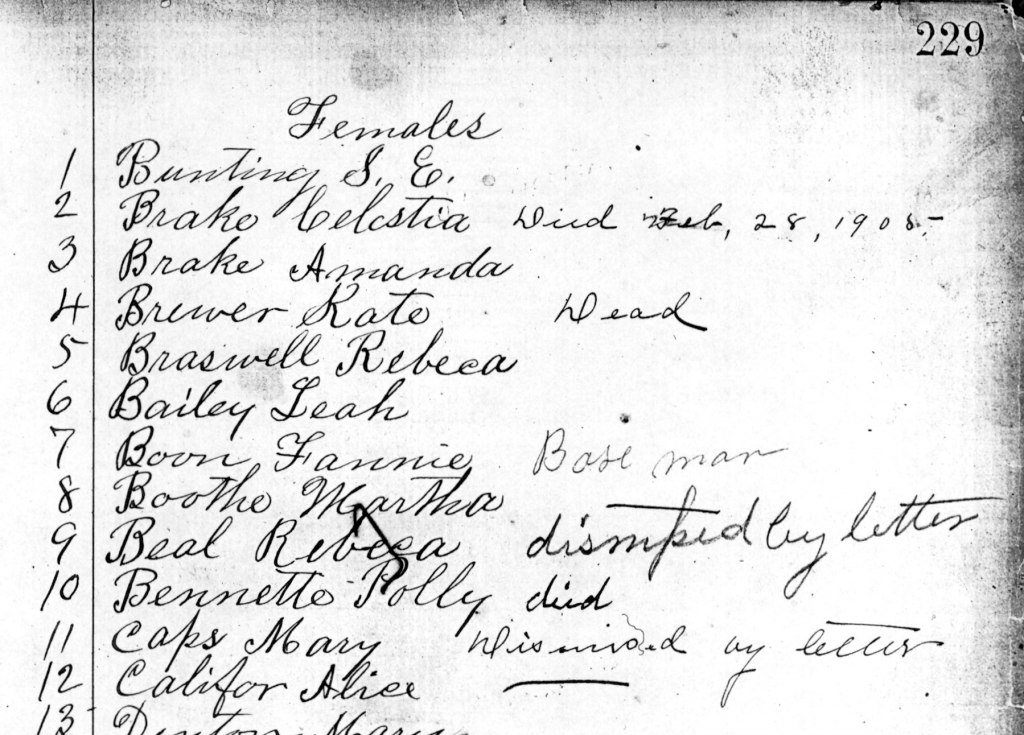 229
Females
1 Bunting S. E.
2 Brake Celestia Died Feb, 28, 1908.
3 Brake Amanda
4 Brewer Kate Dead
5 Braswell Rebeca
6 Bailey Leah
7 Boon Fannie Bose man
8 Boothe Martha
9 Beal Rebeca dismised by letter
10 Bennette Polly died
11 Caps Mary Dismissed by letter
12 Califor Alice
13